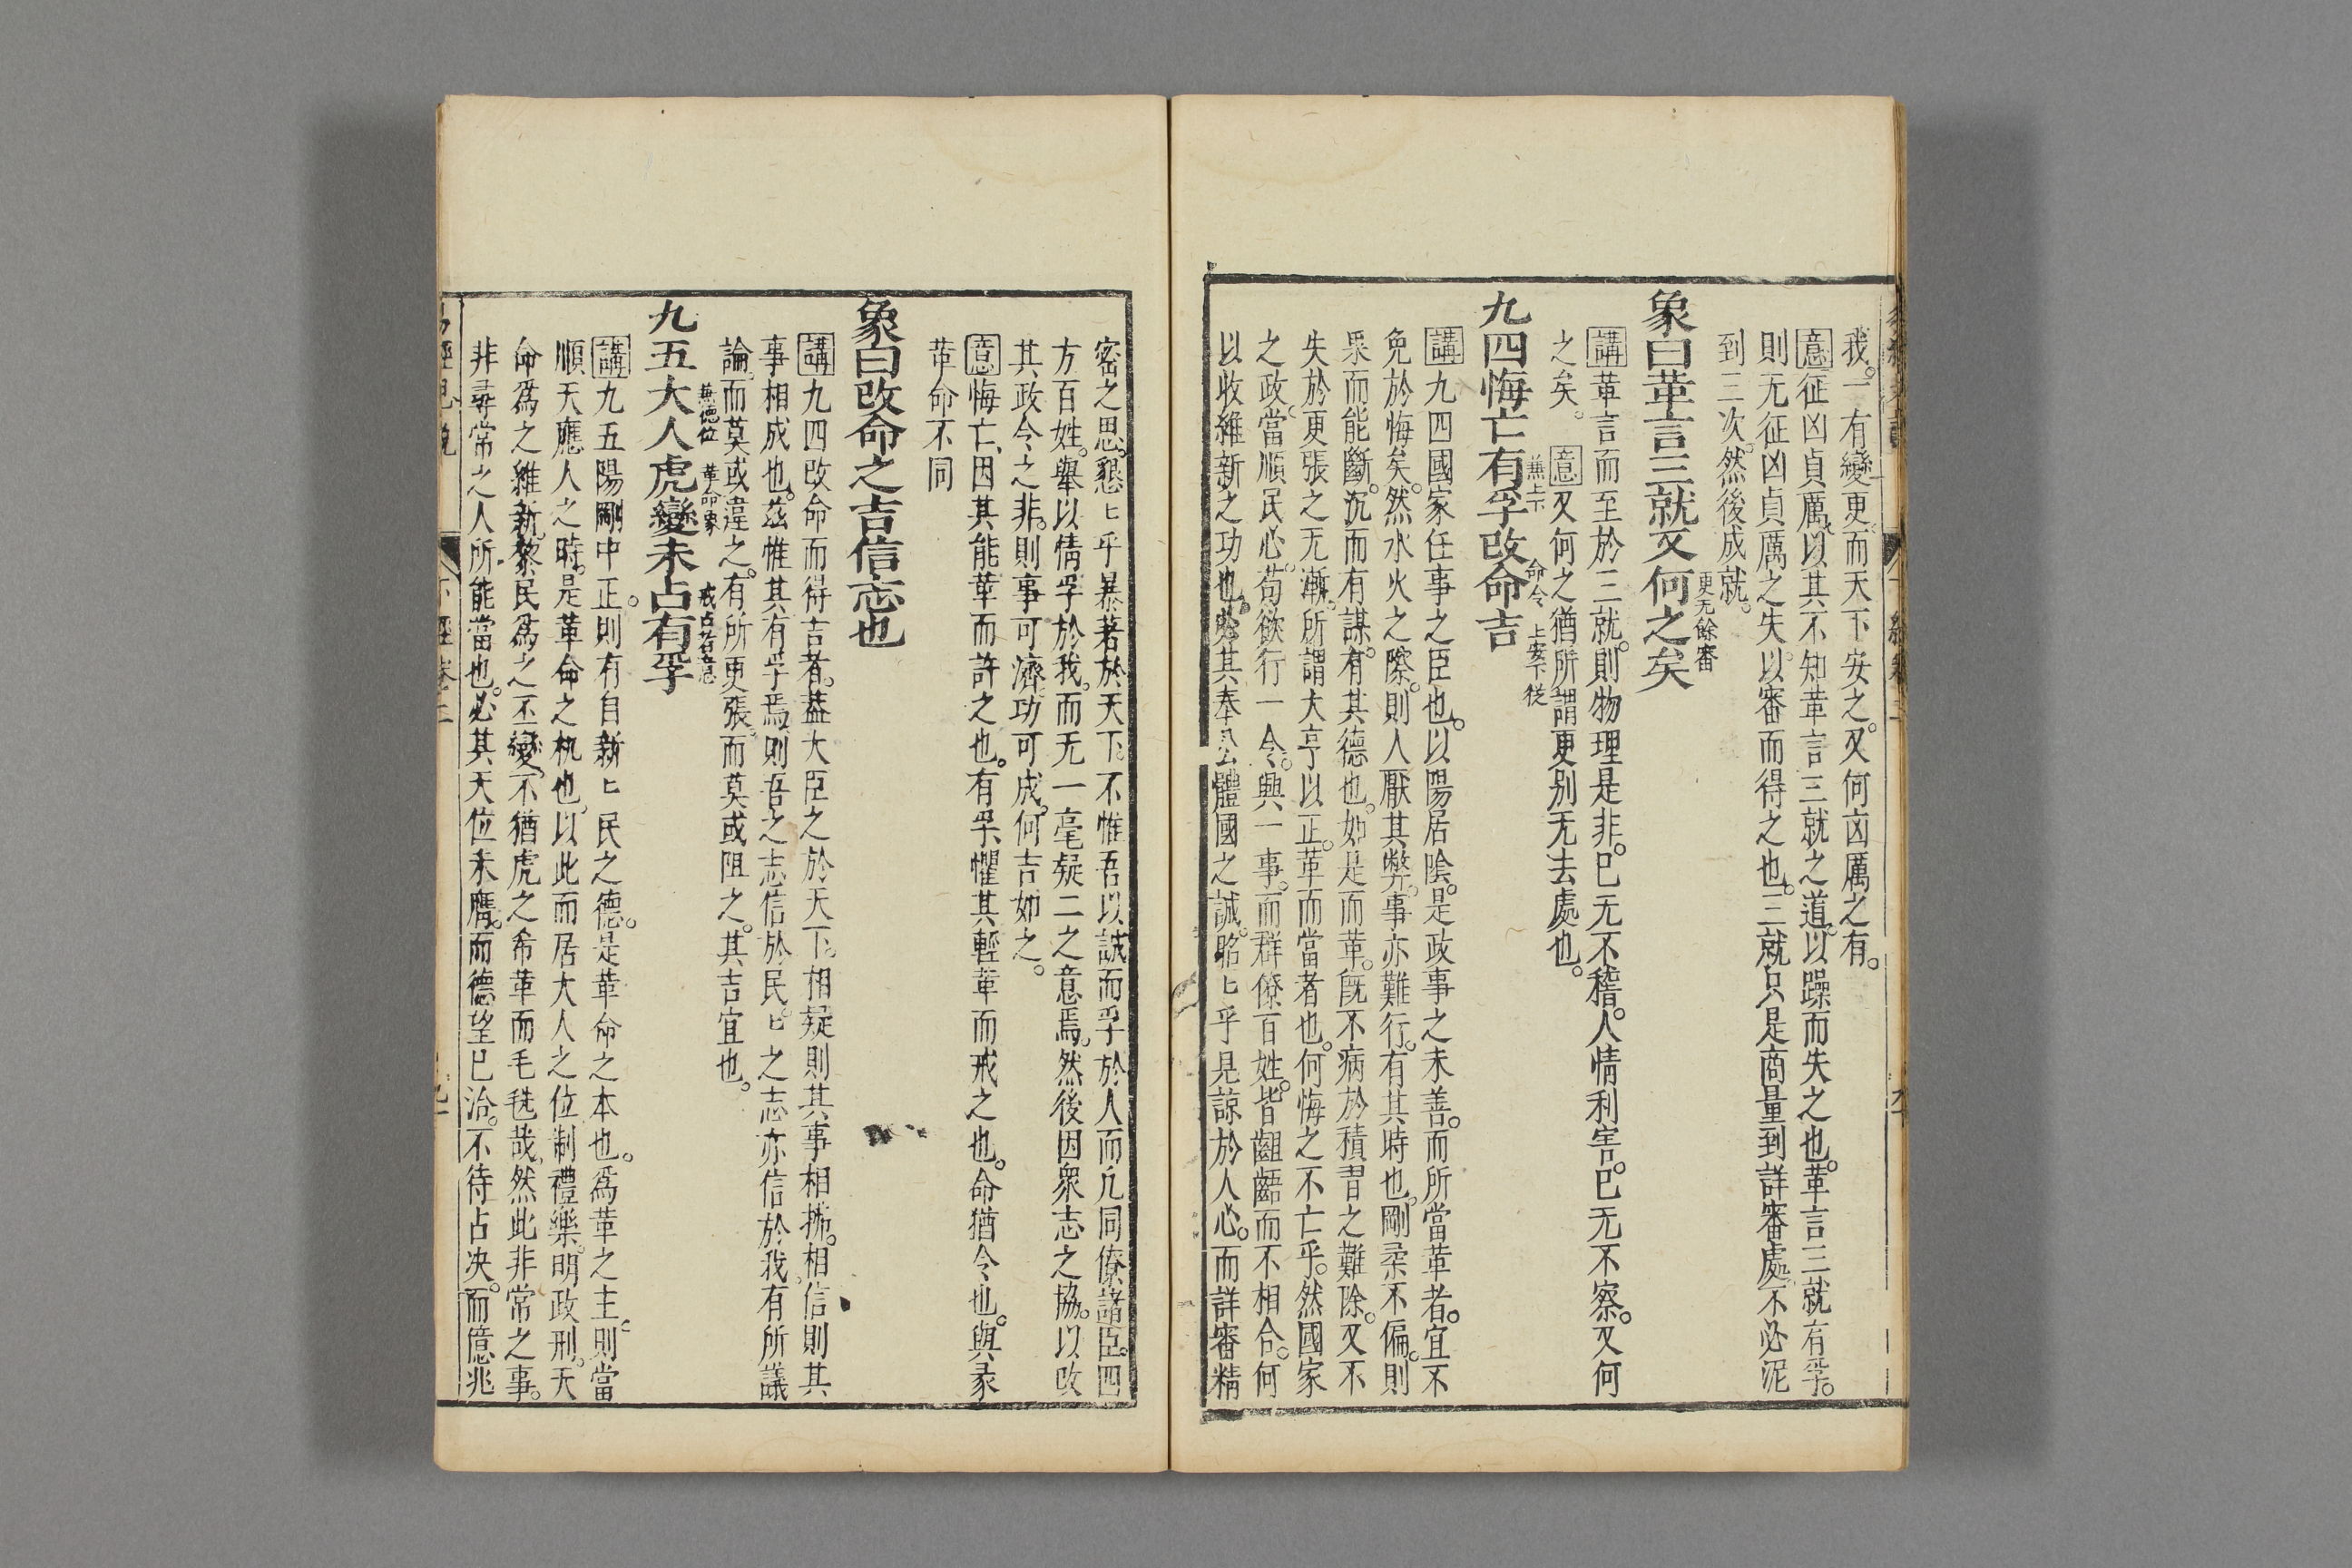 我。一有變更。而天下安之。又何凶厲之有。
意征凶貞厲。以其不知革言三就之道。以躁而失之也。革言三就有孚。
則无征凶貞厲之失。以審而得之也。三就只是商量到詳審處。不必泥
到三次。然後成就。
象曰革言三就又何之矣
更无餘審
講革言而至於三就。則物理是非。已无不稽。人情利害。已无不察。又何
之矣。意又何之猶所謂更別无去處也。
九四悔亡有孚改命吉
兼上下 命令 上安下從
講九四國家任事之臣也。以陽居陰。是政事之未善。而所當革者。宜不
免於悔矣。然水火之際。則人厭其弊。事亦難行。有其時也。剛柔不偏。則
果而能斷。沉而有謀。有其德也。如是而革。旣不病於積習之難除。又不
失於更張之无漸。所謂大亨以正。革而當者也。何悔之不亡乎。然國家
之政。當順民心。苟欲行一令。興一事。而群僚百姓。皆齟齬而不相合。何
以收維新之功也。必其奉公體國之誠。昭匕乎見諒於人心。而詳審精
密之思。懇匕乎暴著於天下。不惟吾以誠而孚於人而凢同僚諸臣。四
方百姓。舉以情孚於我。而无一毫疑二之意焉。然後因衆志之協。以改
其政令之非。則事可濟。功可成。何吉如之。
意悔亡。因其能革而許之也。有孚。懼其輕革而戒之也。命猶令也。與彖
革命不同
象曰改命之吉信志也
講九四改命而得吉者。葢大臣之於天下。相疑則其事相撓。相信則其
事相成也。茲惟其有孚焉。則吾之志信於民。匕之志亦信於我。有所議
論。而莫或違之。有所更張。而莫或阻之。其吉宜也。
九五大人虎變未占有孚
兼德位 革命象 戒占者意
講九五陽剛中正。則有自新匕民之德。是革命之本也。爲革之主。則當
順天應人之時。是革命之机也。以此而居大人之位制禮樂。明政刑。天
命爲之維新。黎民爲之丕變。不猶虎之希革而毛毨哉。然此非常之事。
非尋常之人所能當也。必其天位未膺。而德望已洽。不待占决。而億兆